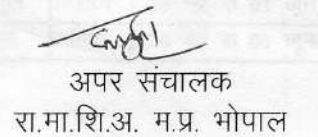 अपर संचालक
रा.मा.शि.अ. म.प्र. भोपाल